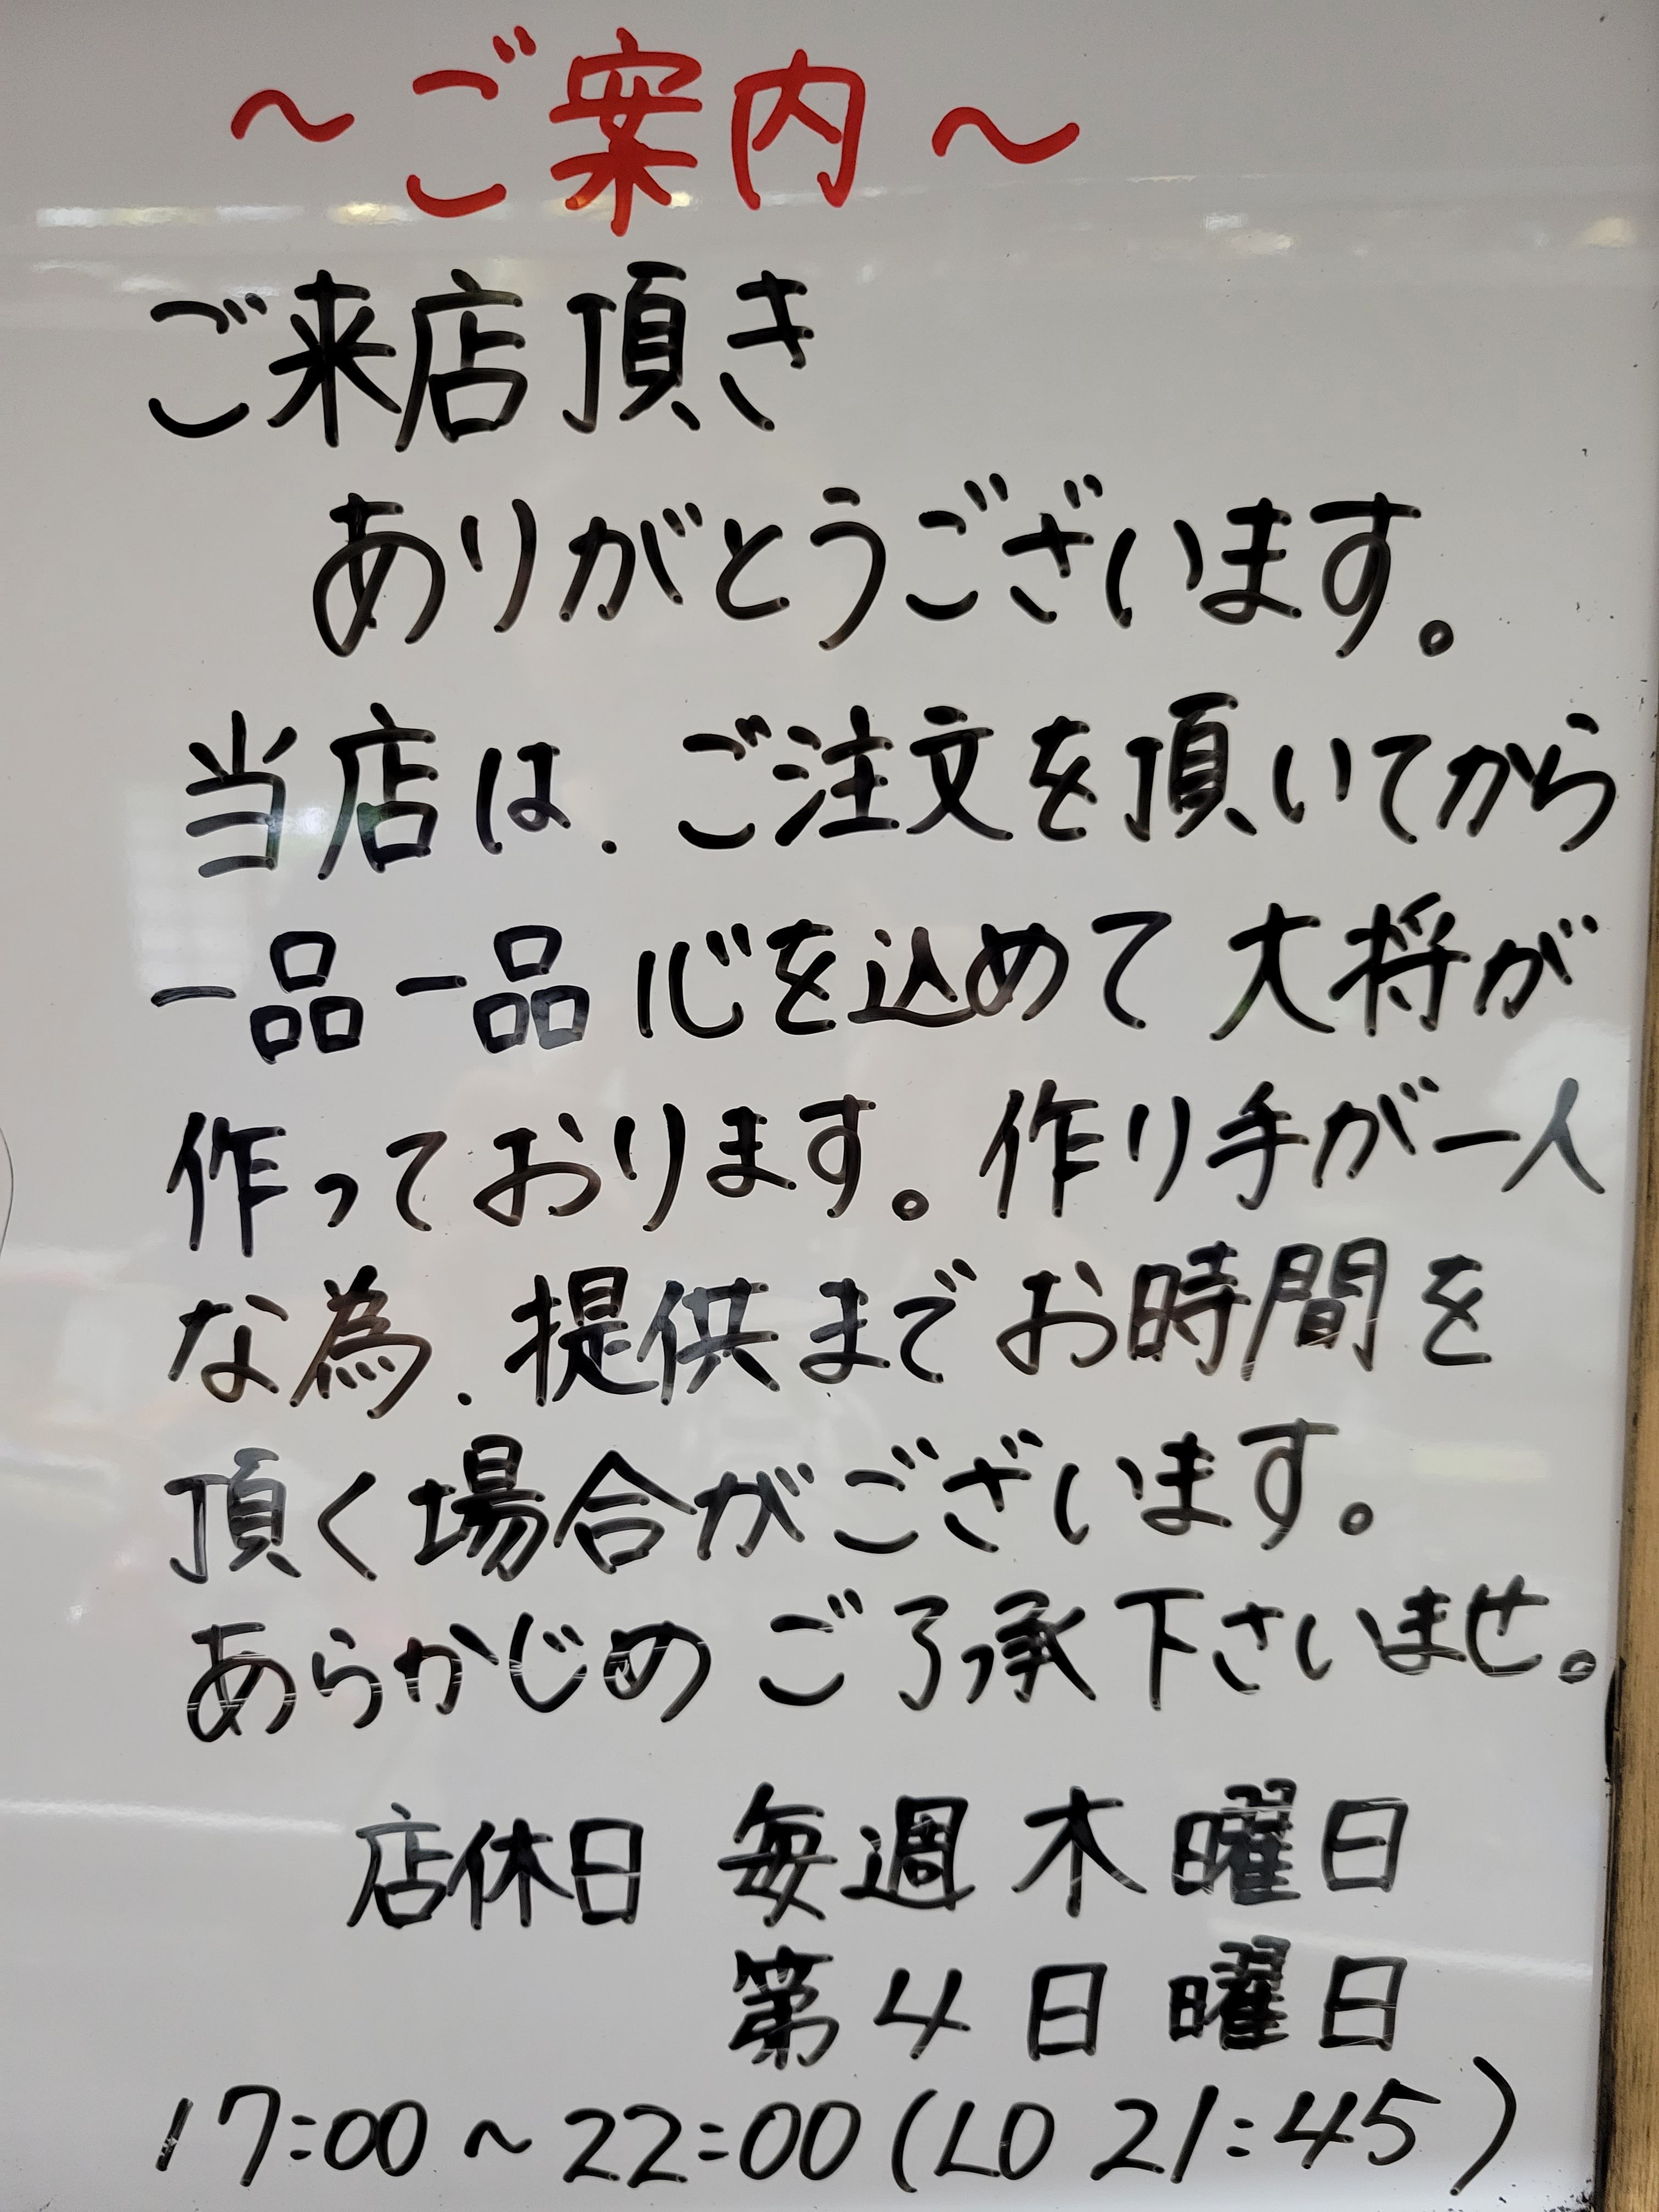 ～ご案内～
ご来店頂き
ありがとうございます。
当店は、ご注文を頂いてから
一品一品 心を込めて 大将が
作っております。作り手が一人
な為、提供までお時間を
頂く場合がございます。
あらかじめ ご了承下さいませ。
店休日 毎週 木曜日
第4日曜日
17:00～22:00(LO 21:45)